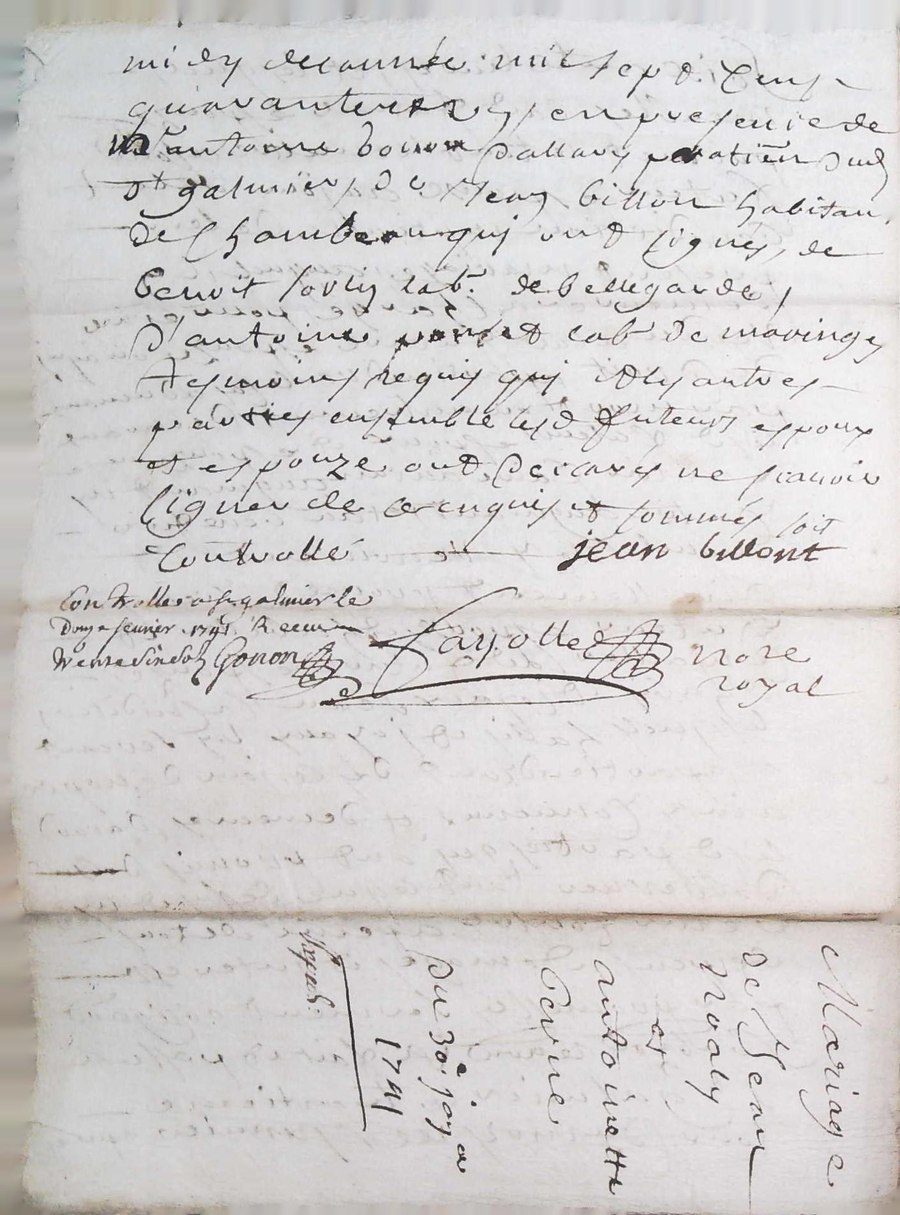 midy de l'année mil sept Cens
quarante un en presence de
Mr antoine bonon dallary praticien dud
St galmier, de Jean billon habitan
de Chambeau qui ont signés, de
benoit lab.r de bellegarde,
d'antoine lab.r de maringes
tesmoins requis qui et les autres
parties ensemble lesd futeurs espoux
et espouze ont declarés ne scavoir
signer de ce enquis et sommés soit
Controllé jean billont
Controlle a St galmier le
Douze fevrier 1741 Receu
trente six sols Gonon
fayolle nore
royal
Mariage
de Jean
Noaly
et
antoinette
Perine
Du 30e janer
1741